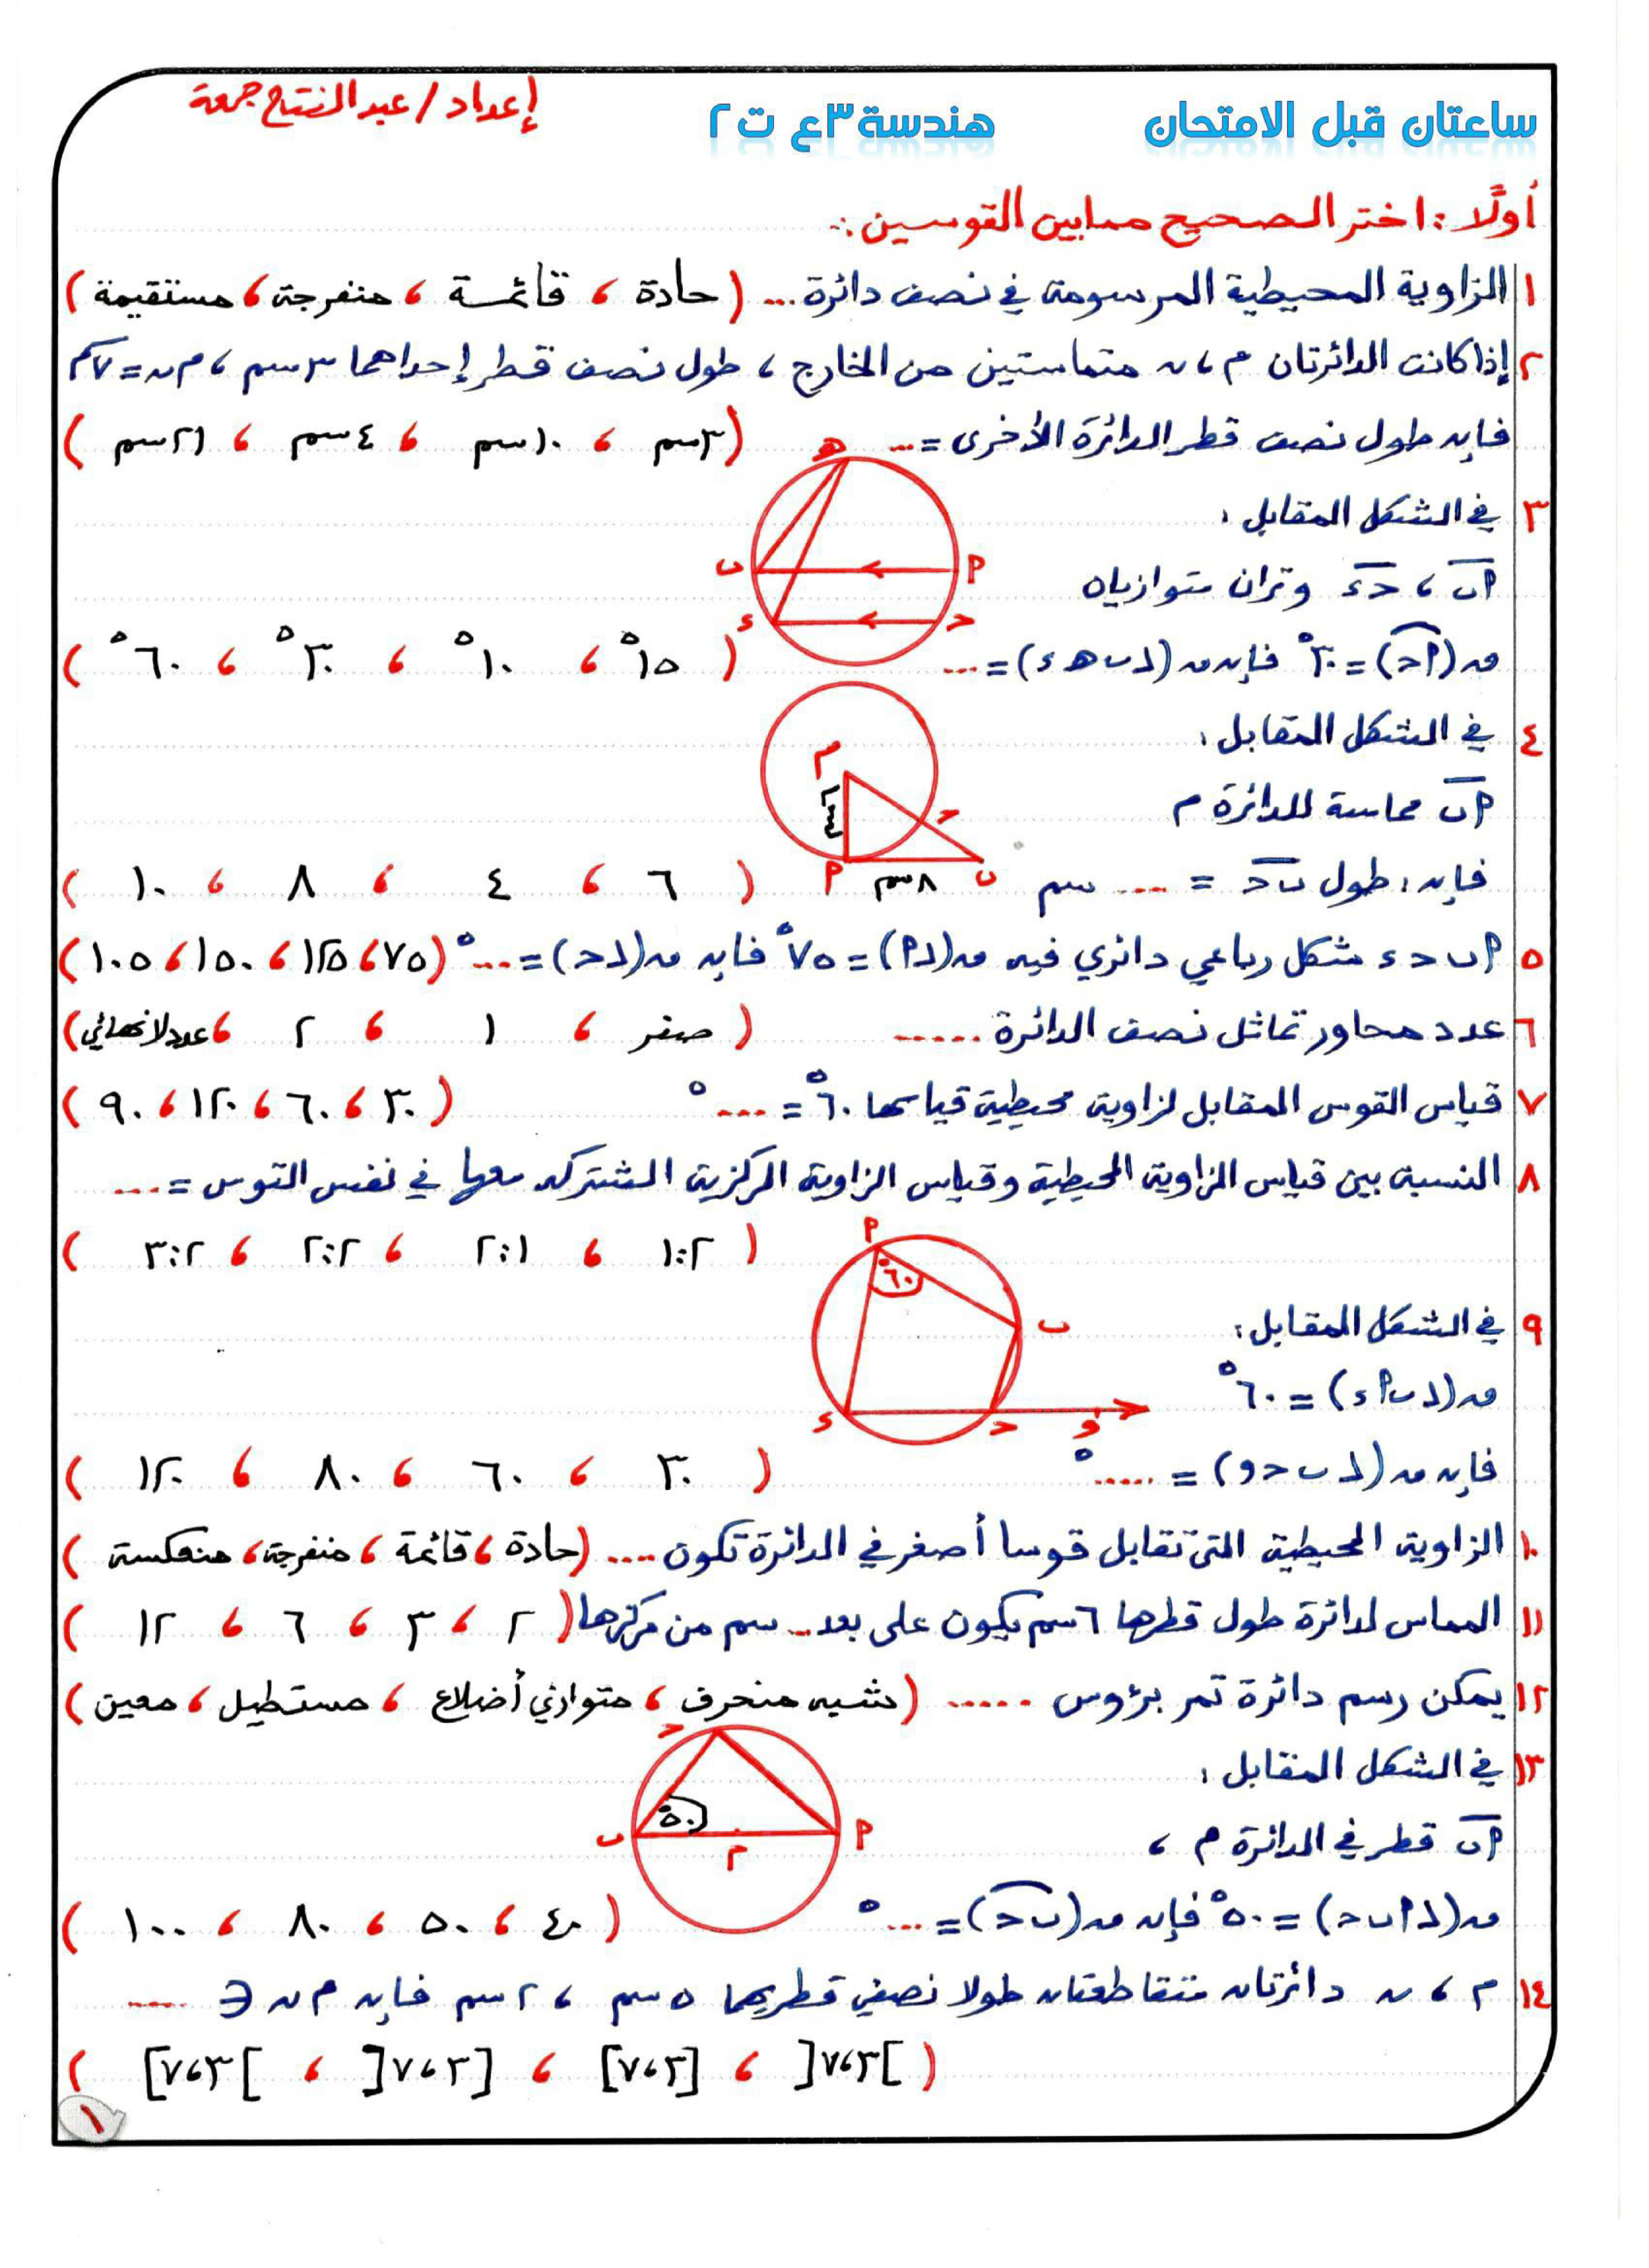 ساعتان قبل الامتحان هندسة ٣ع ت٢ إعداد / عبدالفتاح جمعة
أولًا : اختر الصحيح مما بين القوسين :
١ الزاوية المحيطية المرسومة في نصف دائرة ... ( حادة ، قائمة ، منفرجة ، مستقيمة )
٢ إذا كانت الدائرتان م ، ن متماستين من الخارج ، طول نصف قطر إحداهما ٣سم ، م ن = ٧سم
فإن طول نصف قطر الدائرة الأخرى = ... ( ٣سم ، ١٠سم ، ٤سم ، ٢١سم )
٣ في الشكل المقابل :
أب ، جـ د وتران متوازيان
ق(أجـ) = ٣٠° فإن ق(∠ب هـ د) = ... ( ١٥° ، ١٠° ، ٣٠° ، ٦٠° )
هـ
ب أ
د جـ
٤ في الشكل المقابل :
أب مماسة للدائرة م
فإن : طول ب جـ = ... سم ( ٦ ، ٤ ، ٨ ، ١٠ )
م
٦سم
جـ
أ ٨سم ب
٥ أ ب جـ د شكل رباعي دائري فيه ق(∠أ) = ٧٥° فإن ق(∠جـ) = ...° (٧٥ ، ١٢٥ ، ١٥٠ ، ١٠٥)
٦ عدد محاور تماثل نصف الدائرة ..... ( صفر ، ١ ، ٢ ، عدد لا نهائي )
٧ قياس القوس المقابل لزاوية محيطية قياسها ٦٠° = ...° ( ٣٠ ، ٦٠ ، ١٢٠ ، ٩٠ )
٨ النسبة بين قياس الزاوية المحيطية وقياس الزاوية المركزية المشتركة معها في نفس القوس = ...
( ١:٢ ، ٢:١ ، ٢:٢ ، ٣:٢ )
٩ في الشكل المقابل :
ق(∠ب أ د) = ٦٠°
فإن ق(∠ب جـ و) = .....° ( ٣٠ ، ٦٠ ، ٨٠ ، ١٢٠ )
أ
٦٠°
ب
د جـ و
١٠ الزاوية المحيطية التي تقابل قوسا أصغر في الدائرة تكون .... ( حادة ، قائمة ، منفرجة ، منعكسة )
١١ المماس لدائرة طول قطرها ٦سم يكون على بعد ... سم من مركزها ( ٢ ، ٣ ، ٦ ، ١٢ )
١٢ يمكن رسم دائرة تمر برؤوس ..... ( شبه منحرف ، متوازي أضلاع ، مستطيل ، معين )
١٣ في الشكل المقابل :
أب قطر في الدائرة م ،
ق(∠أ ب جـ) = ٥٠° فإن ق(ب جـ) = ...° ( ٤٠ ، ٥٠ ، ٨٠ ، ١٠٠ )
جـ
٥٠°
ب م أ
١٤ م ، ن دائرتان متقاطعتان طولا نصفي قطريهما ٥سم ، ٢سم فإن م ن ∈ ....
( ]٣،٧[ ، [٣،٧] ، [٣،٧[ ، ]٣،٧] )
١